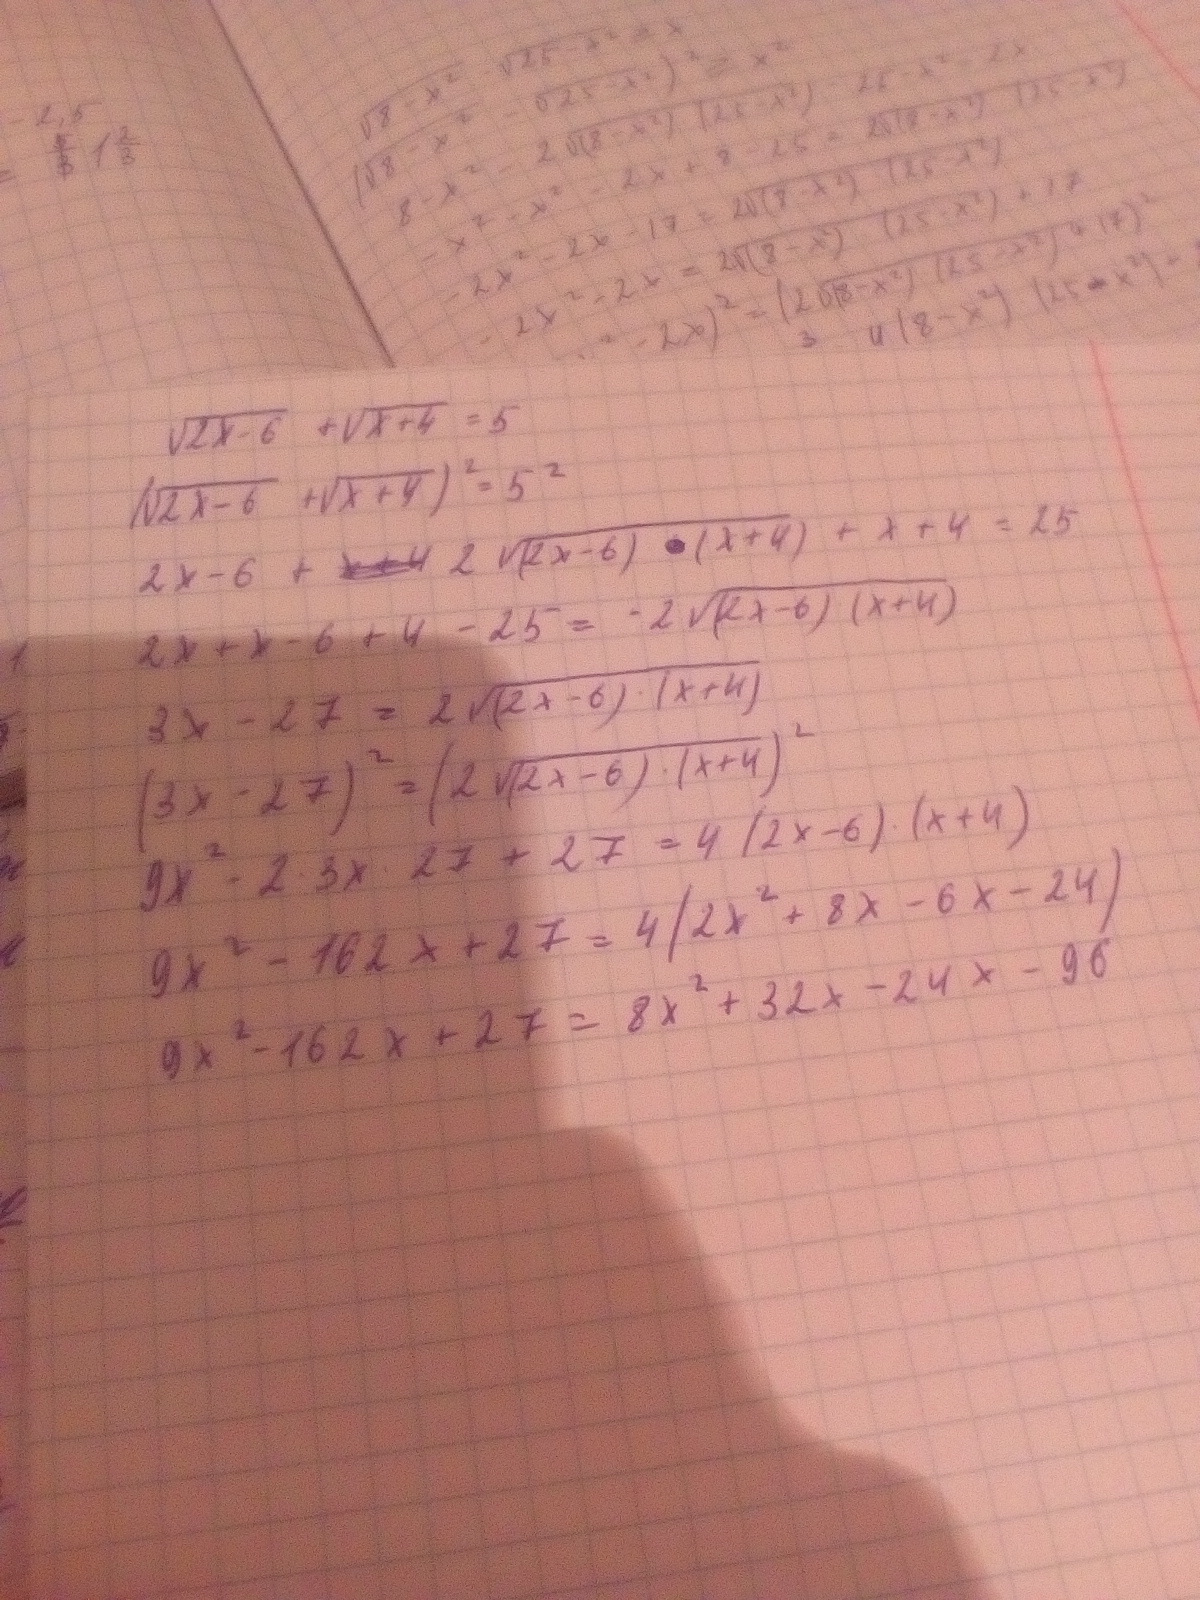 - 2,5
= 5/3 1 2/3
√8-x² - √25-x² = x
(√8-x² - √25-x²)² = x²
8-x² - 2√(8-x²)·(25-x²) - 25-x² = 2x
-x² - x² - 2x + 8 - 25 = 2√(8-x²)·(25-x²)
-2x² - 2x - 17 = 2√(8-x²)·(25-x²)
-2x² - 2x = 2√(8-x²)·(25-x²) + 17
- 2x)² = (2√(8-x²)·(25-x²) + 17)²
4(8-x²)·(25-x²)
√2x-6 + √x+4 = 5
(√2x-6 + √x+4)² = 5²
2x-6 + 2√(2x-6)·(x+4) + x + 4 = 25
2x + x - 6 + 4 - 25 = -2√(2x-6)(x+4)
3x - 27 = 2√(2x-6)·(x+4)
(3x - 27)² = (2√(2x-6)·(x+4))²
9x² - 2·3x·27 + 27 = 4(2x-6)·(x+4)
9x² - 162x + 27 = 4(2x² + 8x - 6x - 24)
9x² - 162x + 27 = 8x² + 32x - 24x - 96